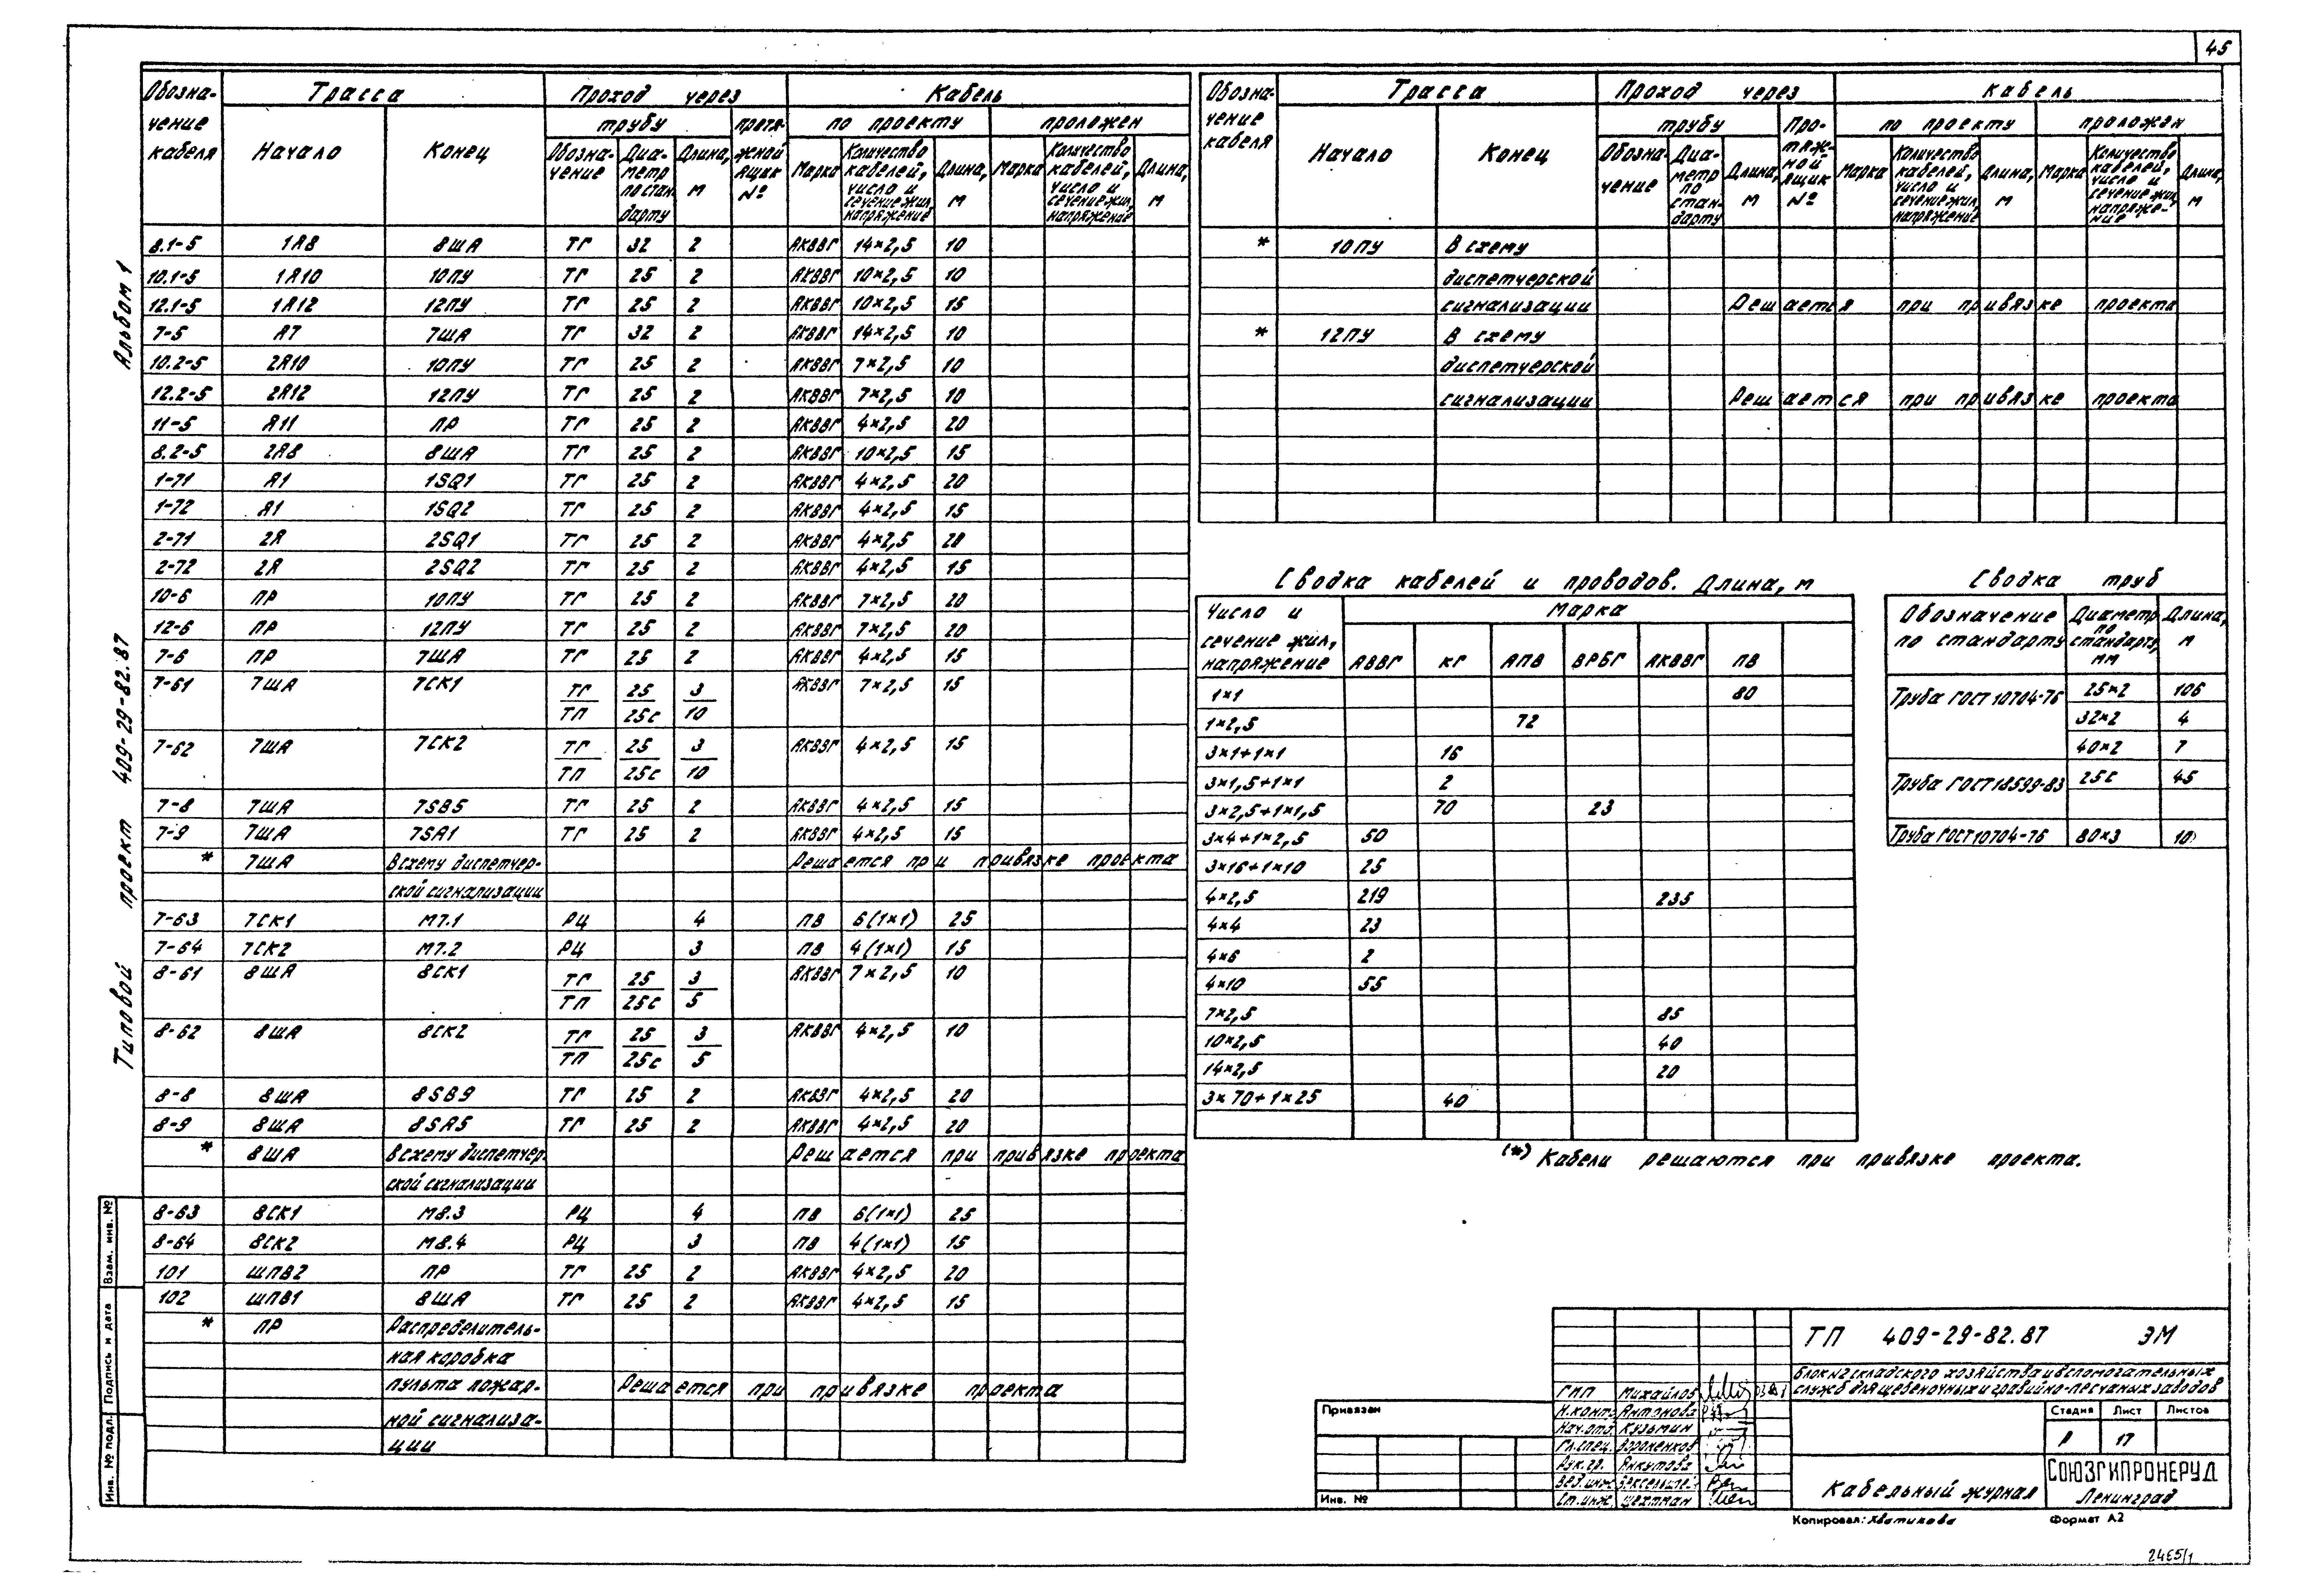 45
Альбом 1
Типовой проект 409-29-82.87
Обозна- Трасса Проход через Кабель
чение трубу протя- по проекту проложен
кабеля Начало Конец Обозна- Диа- Длина, жной Марка Количество Длина, Марка Количество Длина,
чение метр м ящик кабелей, м кабелей, м
по стан- № число и число и
дарту сечение жил, сечение жил,
напряжение напряжение
8.1-5 1А8 8ША ТГ 32 2 АКВВГ 14×2,5 10
10.1-5 1А10 10ПУ ТГ 25 2 АКВВГ 10×2,5 10
12.1-5 1А12 12ПУ ТГ 25 2 АКВВГ 10×2,5 15
7-5 А7 7ША ТГ 32 2 АКВВГ 14×2,5 10
10.2-5 2А10 10ПУ ТГ 25 2 АКВВГ 7×2,5 10
12.2-5 2А12 12ПУ ТГ 25 2 АКВВГ 7×2,5 10
11-5 А11 ПР ТГ 25 2 АКВВГ 4×2,5 20
8.2-5 2А8 8ША ТГ 25 2 АКВВГ 10×2,5 15
1-71 А1 1SQ1 ТГ 25 2 АКВВГ 4×2,5 20
1-72 А1 1SQ2 ТГ 25 2 АКВВГ 4×2,5 15
2-71 2А 2SQ1 ТГ 25 2 АКВВГ 4×2,5 20
2-72 2А 2SQ2 ТГ 25 2 АКВВГ 4×2,5 15
10-6 ПР 10ПУ ТГ 25 2 АКВВГ 7×2,5 20
12-6 ПР 12ПУ ТГ 25 2 АКВВГ 7×2,5 20
7-6 ПР 7ША ТГ 25 2 АКВВГ 4×2,5 15
7-61 7ША 7СК1 ТГ 25 3 АКВВГ 7×2,5 15
ТП 25С 10
7-62 7ША 7СК2 ТГ 25 3 АКВВГ 4×2,5 15
ТП 25С 10
7-8 7ША 7SB5 ТГ 25 2 АКВВГ 4×2,5 15
7-9 7ША 7SA1 ТГ 25 2 АКВВГ 4×2,5 15
* 7ША В схему диспетчер- Решается при привязке проекта
ской сигнализации
7-63 7СК1 М7.1 РЦ 4 ПВ 6(1×1) 25
7-64 7СК2 М7.2 РЦ 3 ПВ 4(1×1) 15
8-61 8ША 8СК1 ТГ 25 3 АКВВГ 7×2,5 10
ТП 25С 5
8-62 8ША 8СК2 ТГ 25 3 АКВВГ 4×2,5 10
ТП 25С 5
8-8 8ША 8SB9 ТГ 25 2 АКВВГ 4×2,5 20
8-9 8ША 8SA5 ТГ 25 2 АКВВГ 4×2,5 20
* 8ША В схему диспетчер- Решается при привязке проекта
ской сигнализации
8-63 8СК1 М8.3 РЦ 4 ПВ 6(1×1) 25
8-64 8СК2 М8.4 РЦ 3 ПВ 4(1×1) 15
101 ШПВ2 ПР ТГ 25 2 АКВВГ 4×2,5 20
102 ШПВ1 8ША ТГ 25 2 АКВВГ 4×2,5 15
* ПР Распределитель-
ная коробка
пульта пожар- Решается при привязке проекта
ной сигнализа-
ции
Обозна- Трасса Проход через Кабель
чение трубу Про- по проекту проложен
кабеля Начало Конец Обозна- Диа- Длина, тяж- Марка Количество Длина, Марка Количество Длина,
чение метр м ной кабелей, м кабелей, м
по ящик число и число и
стан- № сечение жил, сечение жил,
дарту напряжение напряже-
ние
* 10ПУ В схему
диспетчерской
сигнализации Решается при привязке проекта
* 12ПУ В схему
диспетчерской
сигнализации Решается при привязке проекта
Сводка кабелей и проводов. Длина, м
Число и Марка
сечение жил,
напряжение АВВГ КГ АПВ ВРБГ АКВВГ ПВ
1×1 80
1×2,5 72
3×1+1×1 16
3×1,5+1×1 2
3×2,5+1×1,5 70 23
3×4+1×2,5 50
3×16+1×10 25
4×2,5 219 235
4×4 23
4×6 2
4×10 55
7×2,5 85
10×2,5 40
14×2,5 20
3×70+1×25 40
Сводка труб
Обозначение Диаметр Длина,
по стандарту по м
стандарту,
мм
Труба ГОСТ 10704-76 25×2 106
32×2 4
40×2 7
Труба ГОСТ 18599-83 25С 45
Труба ГОСТ 10704-76 80×3 10
(*) Кабели решаются при привязке проекта.
Взам. инв. №
Подпись и дата
Инв. № подл.
Привязан
Инв. №
ТП 409-29-82.87 ЭМ
Блок №2 складского хозяйства и вспомогательных
служб для щебеночных и гравийно-песчаных заводов
ГИП Михайлов
Н.конт. Антонова
Нач.отд. Кузьмин
Гл.спец. Вороненков
Рук.гр. Анкутова
Вед.инж.
Ст.инж. Шехтман
Стадия Лист Листов
Р 17
Кабельный журнал
СОЮЗГИПРОНЕРУД
Ленинград
Копировал: Хватикова Формат А2